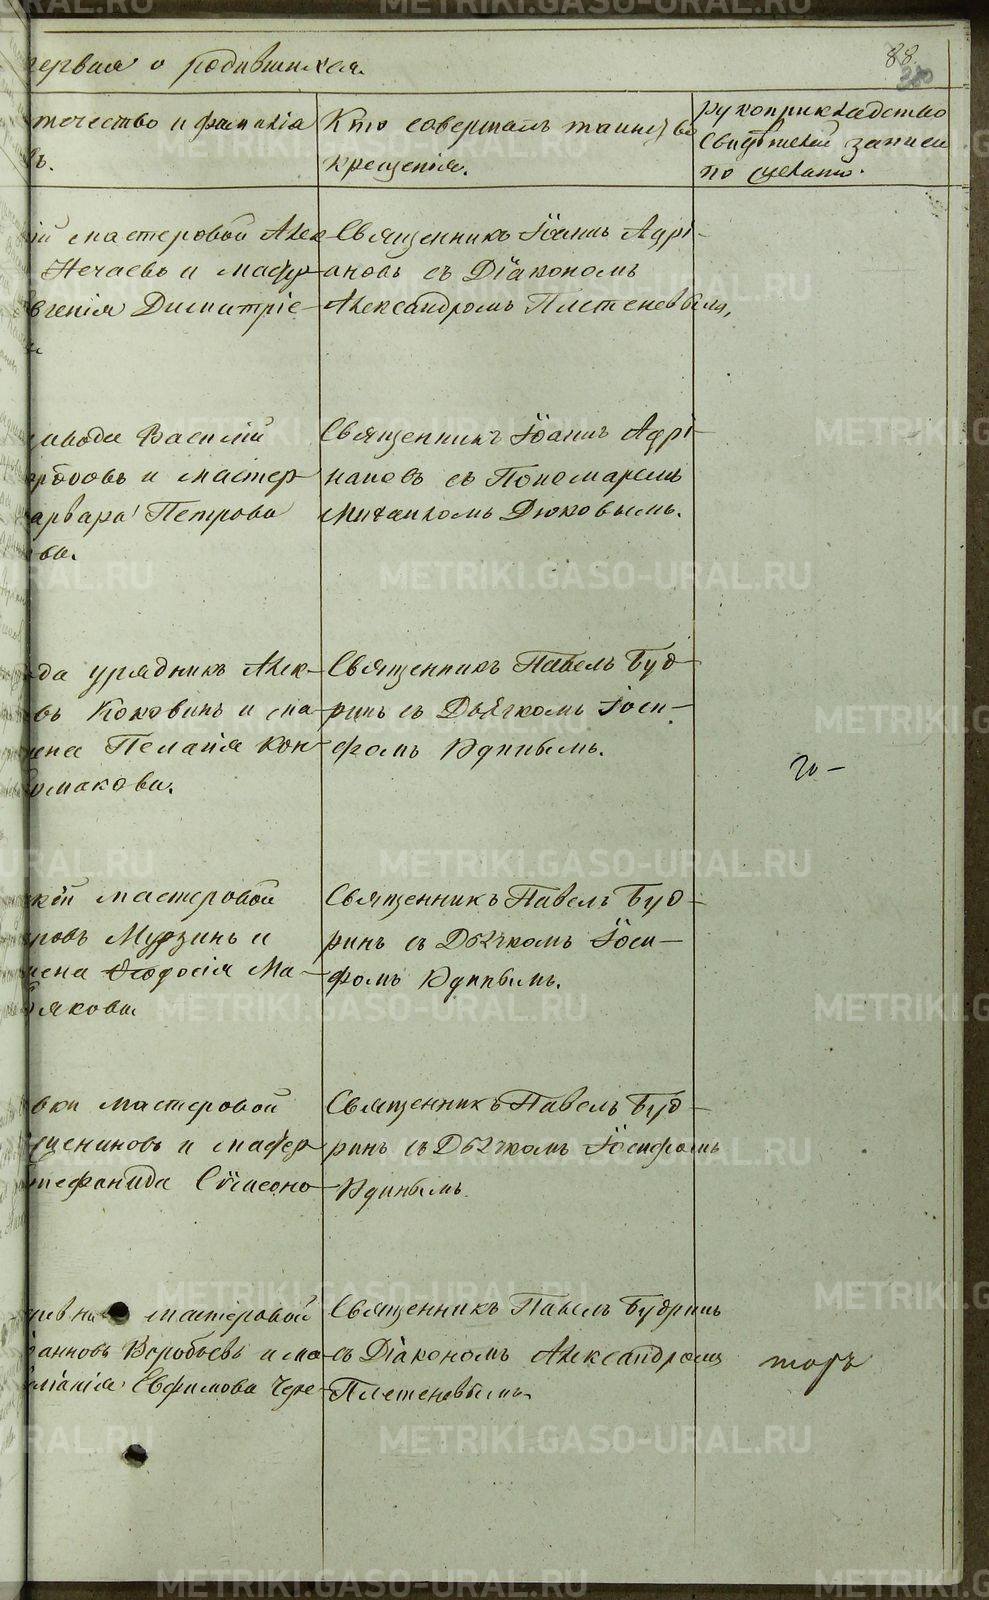 первая о родившихся.
88.
течество и фамилія
въ.
Кто совершалъ таинство
крещенія.
рукоприкладство
свидѣтелей записи
по желанію.
ій мастеровой Алек
Нечаевъ и
вгенія Димитріе-
Священникъ Іоаннъ Адрі-
ановъ съ Діакономъ
Александромъ Плетеневымъ,
Василій
и мастер
арвара Петрова
ва.
Священникъ Іоаннъ Адрі-
ановъ съ Пономаремъ
Михаиломъ Дюковымъ.
да урядникъ Алек-
въ Коковинъ и ма-
ена Пелагія Кон-
омакова.
Священникъ Павелъ Буд-
ринъ съ Дьячкомъ Іоси-
фомъ Удинымъ.
кій мастеровой
ровъ Мурзинъ и
жена Ѳеодосія Ма-
якова
Священникъ Павелъ Буд-
ринъ съ Дьячкомъ Іоси-
фомъ Удинымъ.
вки мастеровой
щениновъ и
тефанида Сѵмеоно-
Священникъ Павелъ Буд-
ринъ съ Дьячкомъ Іосифомъ
Удинымъ.
мастеровой
анновъ Воробьевъ и ма-
Евфимова Чере-
Священникъ Павелъ Будринъ
съ Діакономъ Александромъ
Плетеневымъ.
METRIKI.GASO-URAL.RU